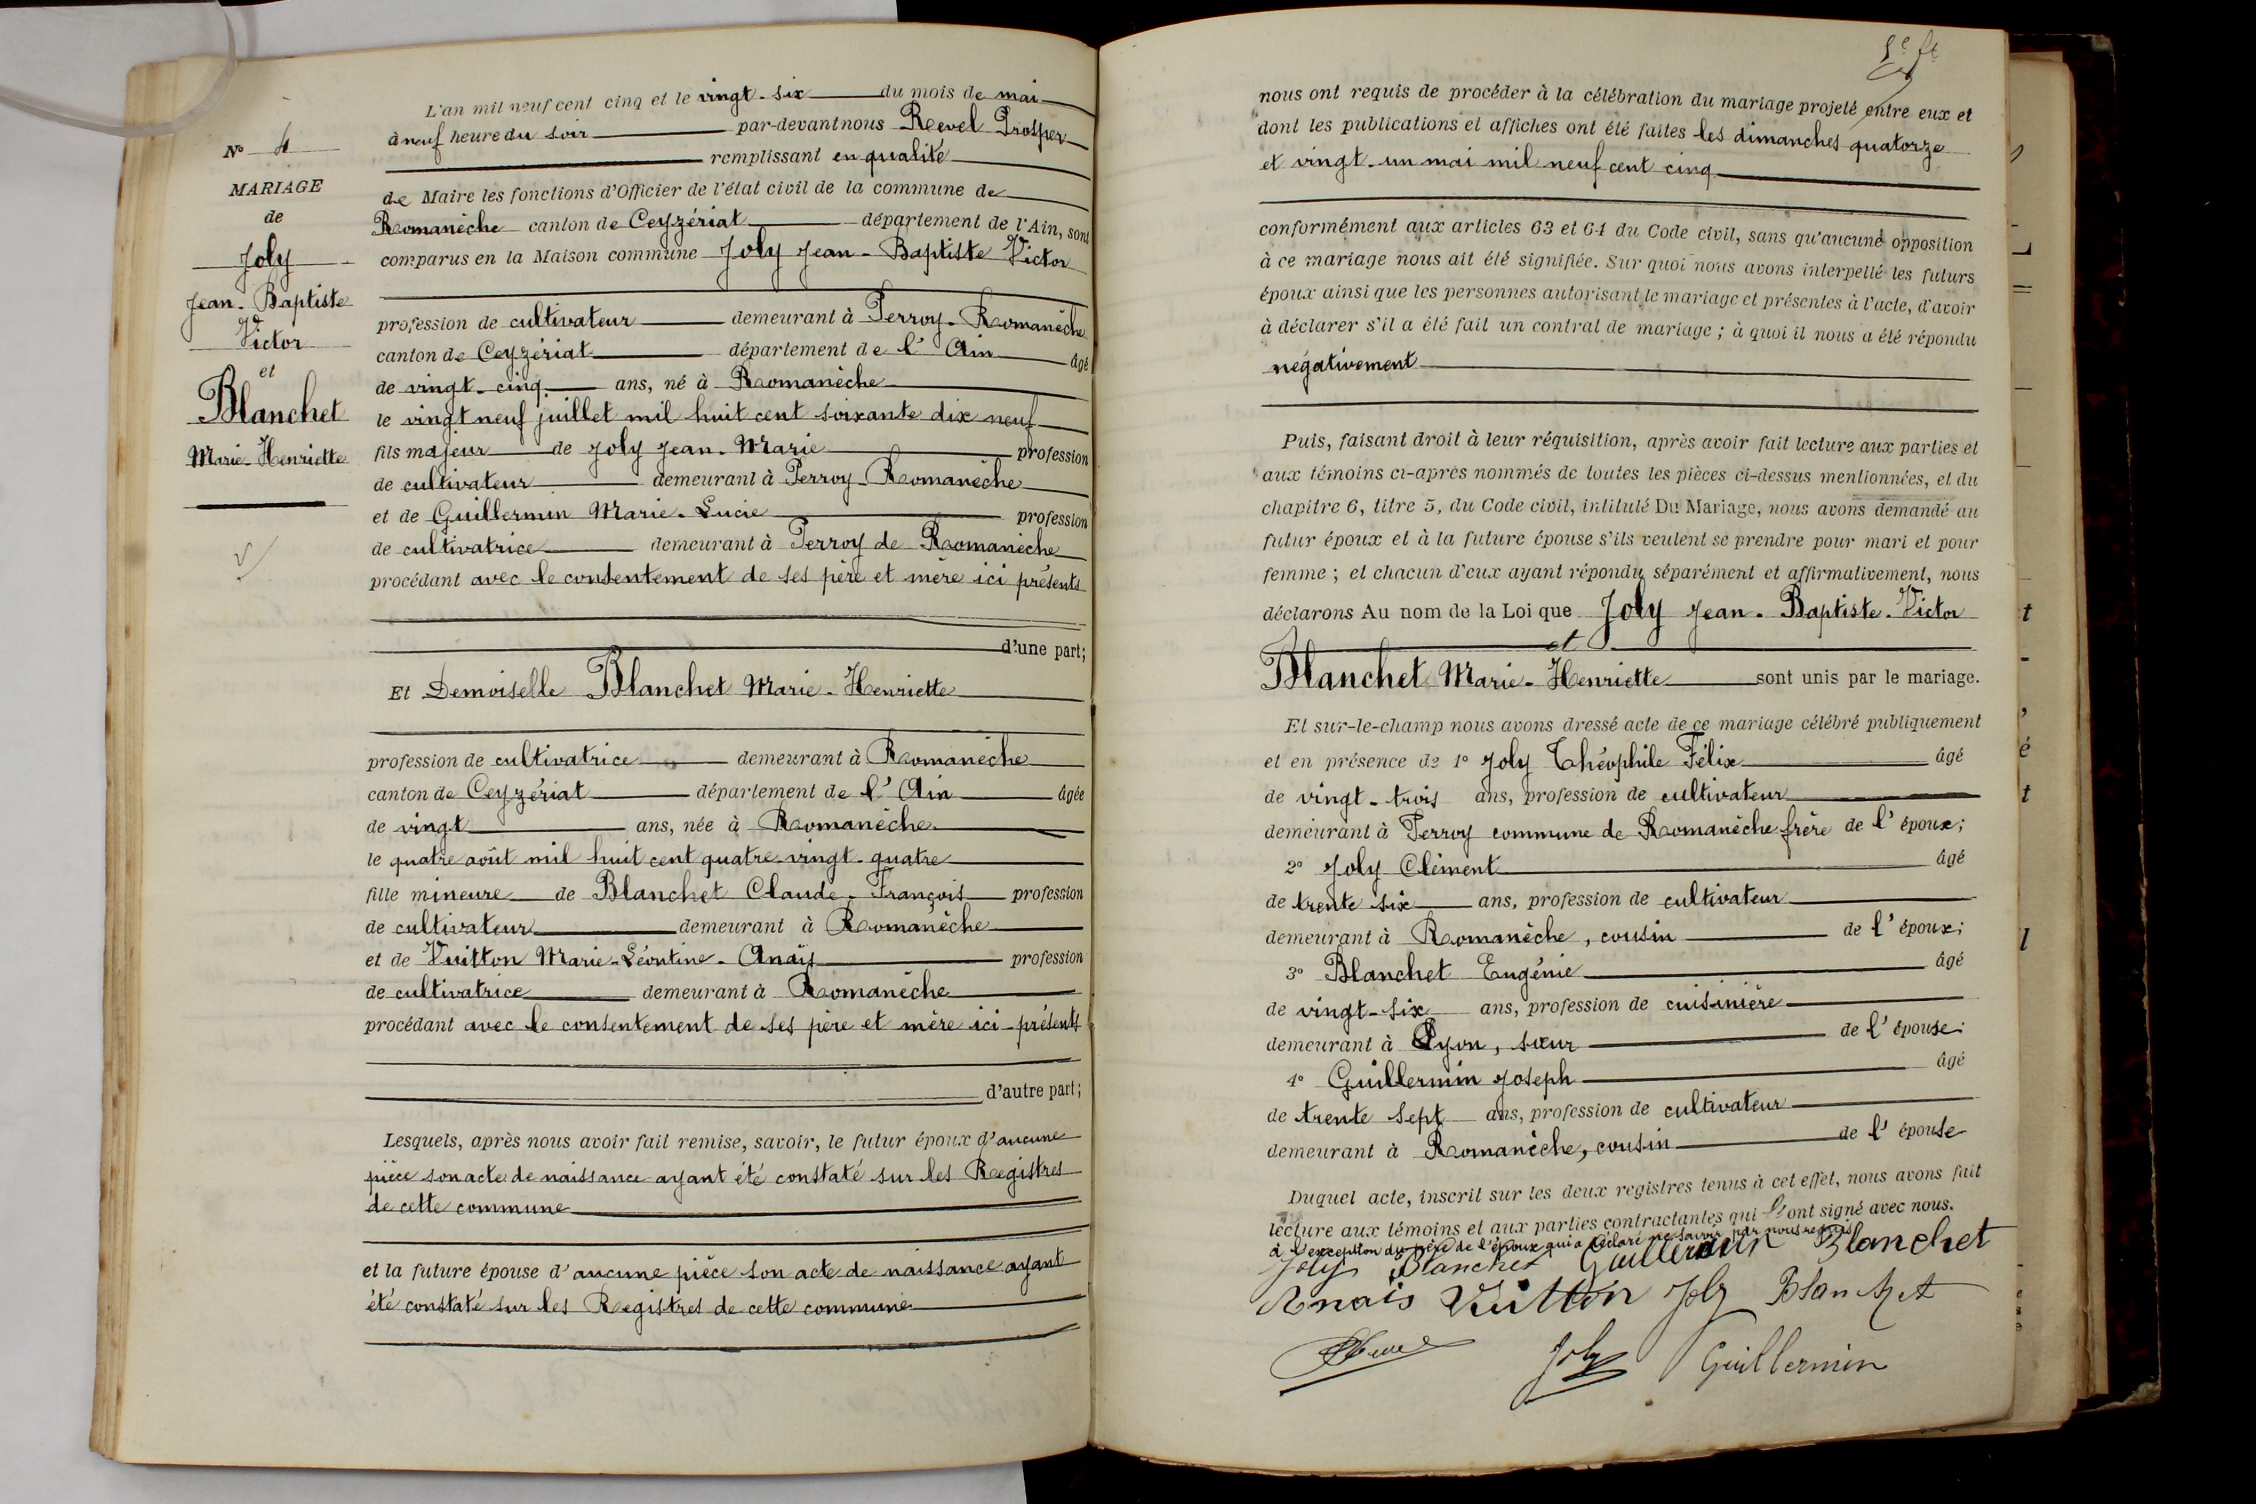 L'an mil neuf cent cinq et le vingt-six du mois de mai
à neuf heure du soir par-devant nous Revel Prosper
remplissant en qualité
de Maire les fonctions d'Officier de l'état civil de la commune de
Romanèche canton de Ceyzériat département de l'Ain, sont
comparus en la Maison commune Joly Jean-Baptiste Victor
profession de cultivateur demeurant à Perroy-Romanèche
canton de Ceyzériat département de l'Ain âgé
de vingt-cinq ans, né à Romanèche
le vingt neuf juillet mil huit cent soixante dix neuf
fils majeur de Joly Jean-Marie profession
de cultivateur demeurant à Perroy-Romanèche
et de Guillermin Marie-Lucie profession
de cultivatrice demeurant à Perroy de Romanèche
procédant avec le consentement de ses père et mère ici présents
d'une part;
Et Demoiselle Blanchet Marie-Henriette
profession de cultivatrice demeurant à Romanèche
canton de Ceyzériat département de l'Ain âgée
de vingt ans, née à Romanèche
le quatre août mil huit cent quatre-vingt-quatre
fille mineure de Blanchet Claude-François profession
de cultivateur demeurant à Romanèche
et de Vuitton Marie-Léontine-Anaïs profession
de cultivatrice demeurant à Romanèche
procédant avec le consentement de ses père et mère ici-présents
d'autre part;
Lesquels, après nous avoir fait remise, savoir, le futur époux d'aucune
pièce son acte de naissance ayant été constaté sur les Registres
de cette commune
et la future épouse d'aucune pièce son acte de naissance ayant
été constaté sur les Registres de cette commune
N° 4
MARIAGE
de
Joly
Jean-Baptiste
Victor
et
Blanchet
Marie-Henriette
nous ont requis de procéder à la célébration du mariage projeté entre eux et
dont les publications et affiches ont été faites les dimanches quatorze
et vingt-un mai mil neuf cent cinq
conformément aux articles 63 et 64 du Code civil, sans qu'aucune opposition
à ce mariage nous ait été signifiée. Sur quoi nous avons interpellé les futurs
époux ainsi que les personnes autorisant le mariage et présentes à l'acte, d'avoir
à déclarer s'il a été fait un contrat de mariage; à quoi il nous a été répondu
négativement
Puis, faisant droit à leur réquisition, après avoir fait lecture aux parties et
aux témoins ci-après nommés de toutes les pièces ci-dessus mentionnées, et du
chapitre 6, titre 5, du Code civil, intitulé Du Mariage, nous avons demandé au
futur époux et à la future épouse s'ils veulent se prendre pour mari et pour
femme; et chacun d'eux ayant répondu séparément et affirmativement, nous
déclarons Au nom de la Loi que Joly Jean-Baptiste-Victor
et
Blanchet Marie-Henriette sont unis par le mariage.
Et sur-le-champ nous avons dressé acte de ce mariage célébré publiquement
et en présence de 1° Joly Théophile Félix âgé
de vingt-trois ans, profession de cultivateur
demeurant à Perroy commune de Romanèche frère de l'époux;
2° Joly Clément âgé
de trente six ans, profession de cultivateur
demeurant à Romanèche, cousin de l'époux;
3° Blanchet Eugénie âgé
de vingt-six ans, profession de cuisinière
demeurant à Lyon, sœur de l'épouse;
4° Guillermin Joseph âgé
de trente sept ans, profession de cultivateur
demeurant à Romanèche, cousin de l'épouse
Duquel acte, inscrit sur les deux registres tenus à cet effet, nous avons fait
lecture aux témoins et aux parties contractantes qui l'ont signé avec nous.
à l'exception du père de l'époux qui a déclaré ne savoir par nous requis
Joly Blanchet Guillermin Blanchet
Anaïs Vuitton Joly Blanchet
Revel Joly Guillermin